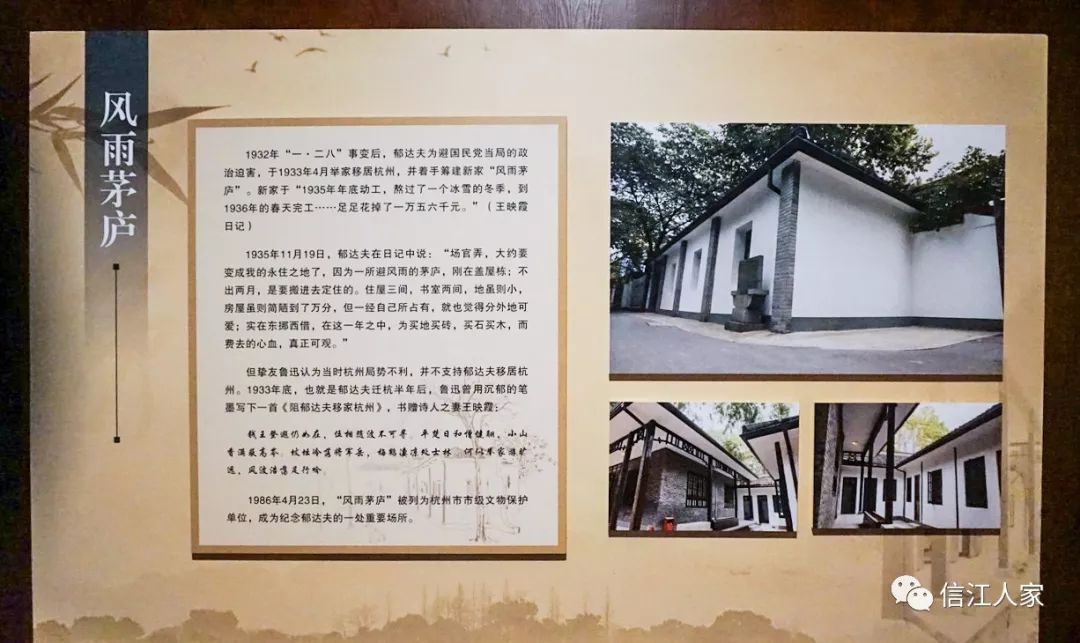 风雨茅庐
1932年“一·二八”事变后，郁达夫为避国民党当局的政
治迫害，于1933年4月举家移居杭州，并着手筹建新家“风雨茅
庐”。新家于“1935年年底动工，熬过了一个冰雪的冬季，到
1936年的春天完工……足足花掉了一万五六千元。”（王映霞
日记）
1935年11月19日，郁达夫在日记中说：“场官弄，大约要
变成我的永住之地了，因为一所避风雨的茅庐，刚在盖屋栋；不
出两月，是要搬进去定住的。住屋三间，书室两间，地虽则小，
房屋虽则简陋到了万分，但一经自己所占有，就也觉得分外地可
爱；实在东挪西借，在这一年之中，为买地买砖，买石买木，而
费去的心血，真正可观。”
但挚友鲁迅认为当时杭州局势不利，并不支持郁达夫移居杭
州。1933年底，也就是郁达夫迁杭半年后，鲁迅曾用沉郁的笔
墨写下一首《阻郁达夫移家杭州》，书赠诗人之妻王映霞：
钱王登遐仍如在，伍相随波不可寻。平楚日和憎健翮，小山
香满蔽高岑。坟坛冷落将军岳，梅鹤凄凉处士林。何似举家游旷
远，风波浩荡足行吟。
1986年4月23日，“风雨茅庐”被列为杭州市市级文物保护
单位，成为纪念郁达夫的一处重要场所。
信江人家